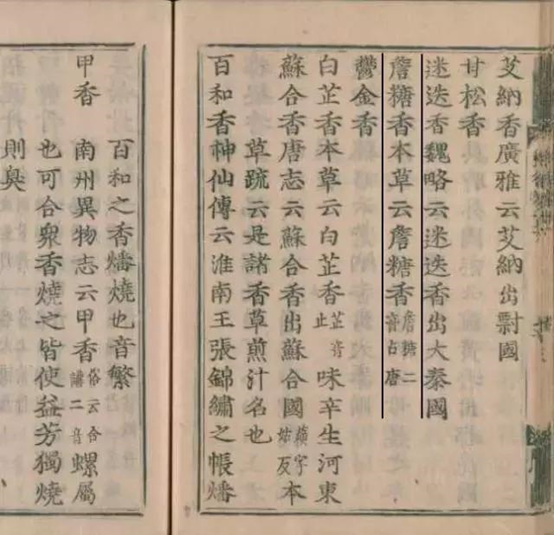 艾納香廣雅云艾納出剽國
甘松香
迷迭香魏略云迷迭香出大秦國
詹糖香本草云詹糖香詹糖二音占唐
鬱金香
白芷香本草云白芷香芷音止味辛生河東
蘇合香唐志云蘇合香出蘇合國蘓字姑反本
草疏云是諸香草煎汁名也
百和香神仙傳云淮南王張錦繡之帳燔
百和之香燔燒也音繁
甲香 南州異物志云甲香俗云合講二音螺屬
也可合衆香燒之皆使益芳獨燒
則臭